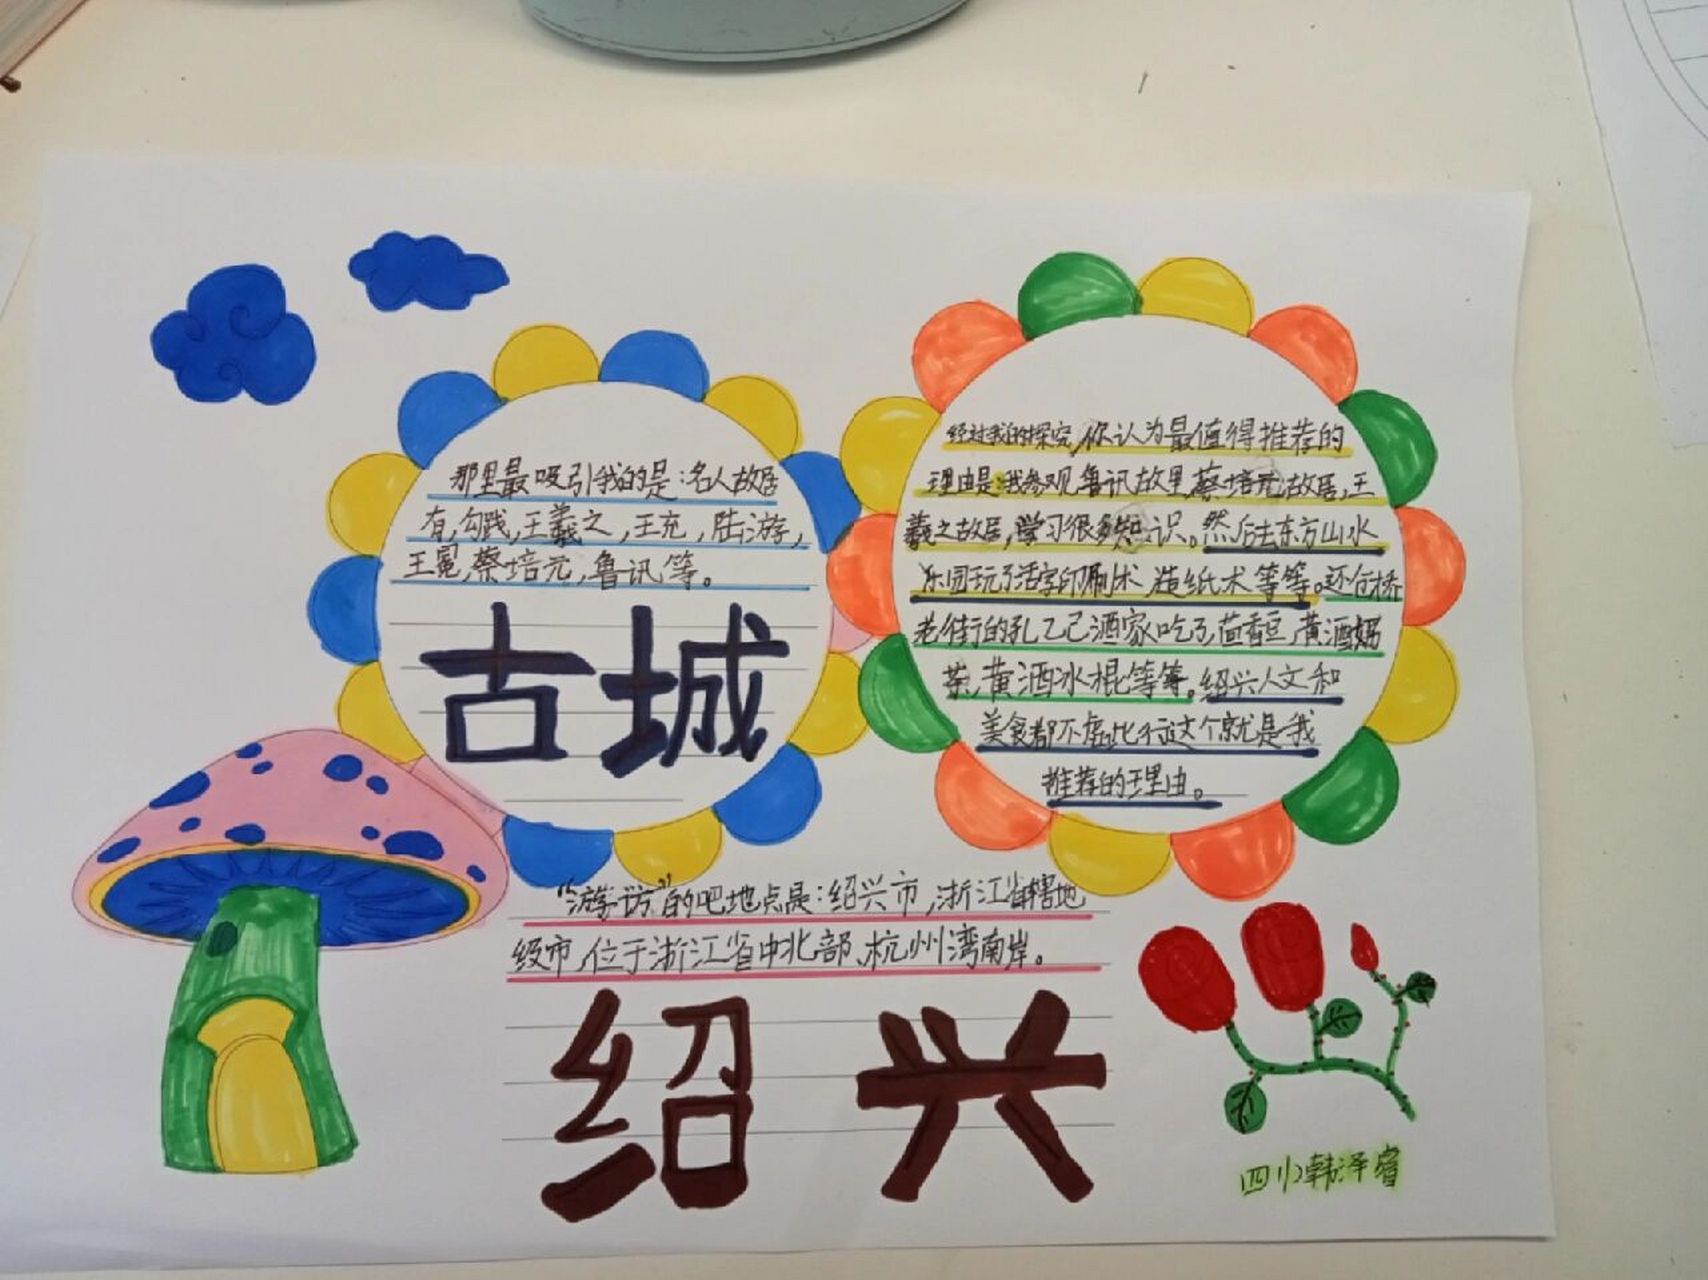 那里最吸引我的是：名人故居
有，勾践，王羲之，王充，陆游，
王冕，蔡培元，鲁讯等。
古城
经过我的探究，你认为最值得推荐的
理由是：我参观鲁讯故里，蔡培元故居，王
羲之故居，学习很多知识。然后去东方山水
乐园玩了活字印刷术，造纸术等等。还仓桥
老街的孔乙己酒家吃了茴香豆，黄酒奶
茶，黄酒冰棍等等。绍兴人文和
美食都不虚此行这个就是我
推荐的理由。
的吧地点是：绍兴市，浙江省辖地
级市，位于浙江省中北部、杭州湾南岸。
绍兴
韩泽睿